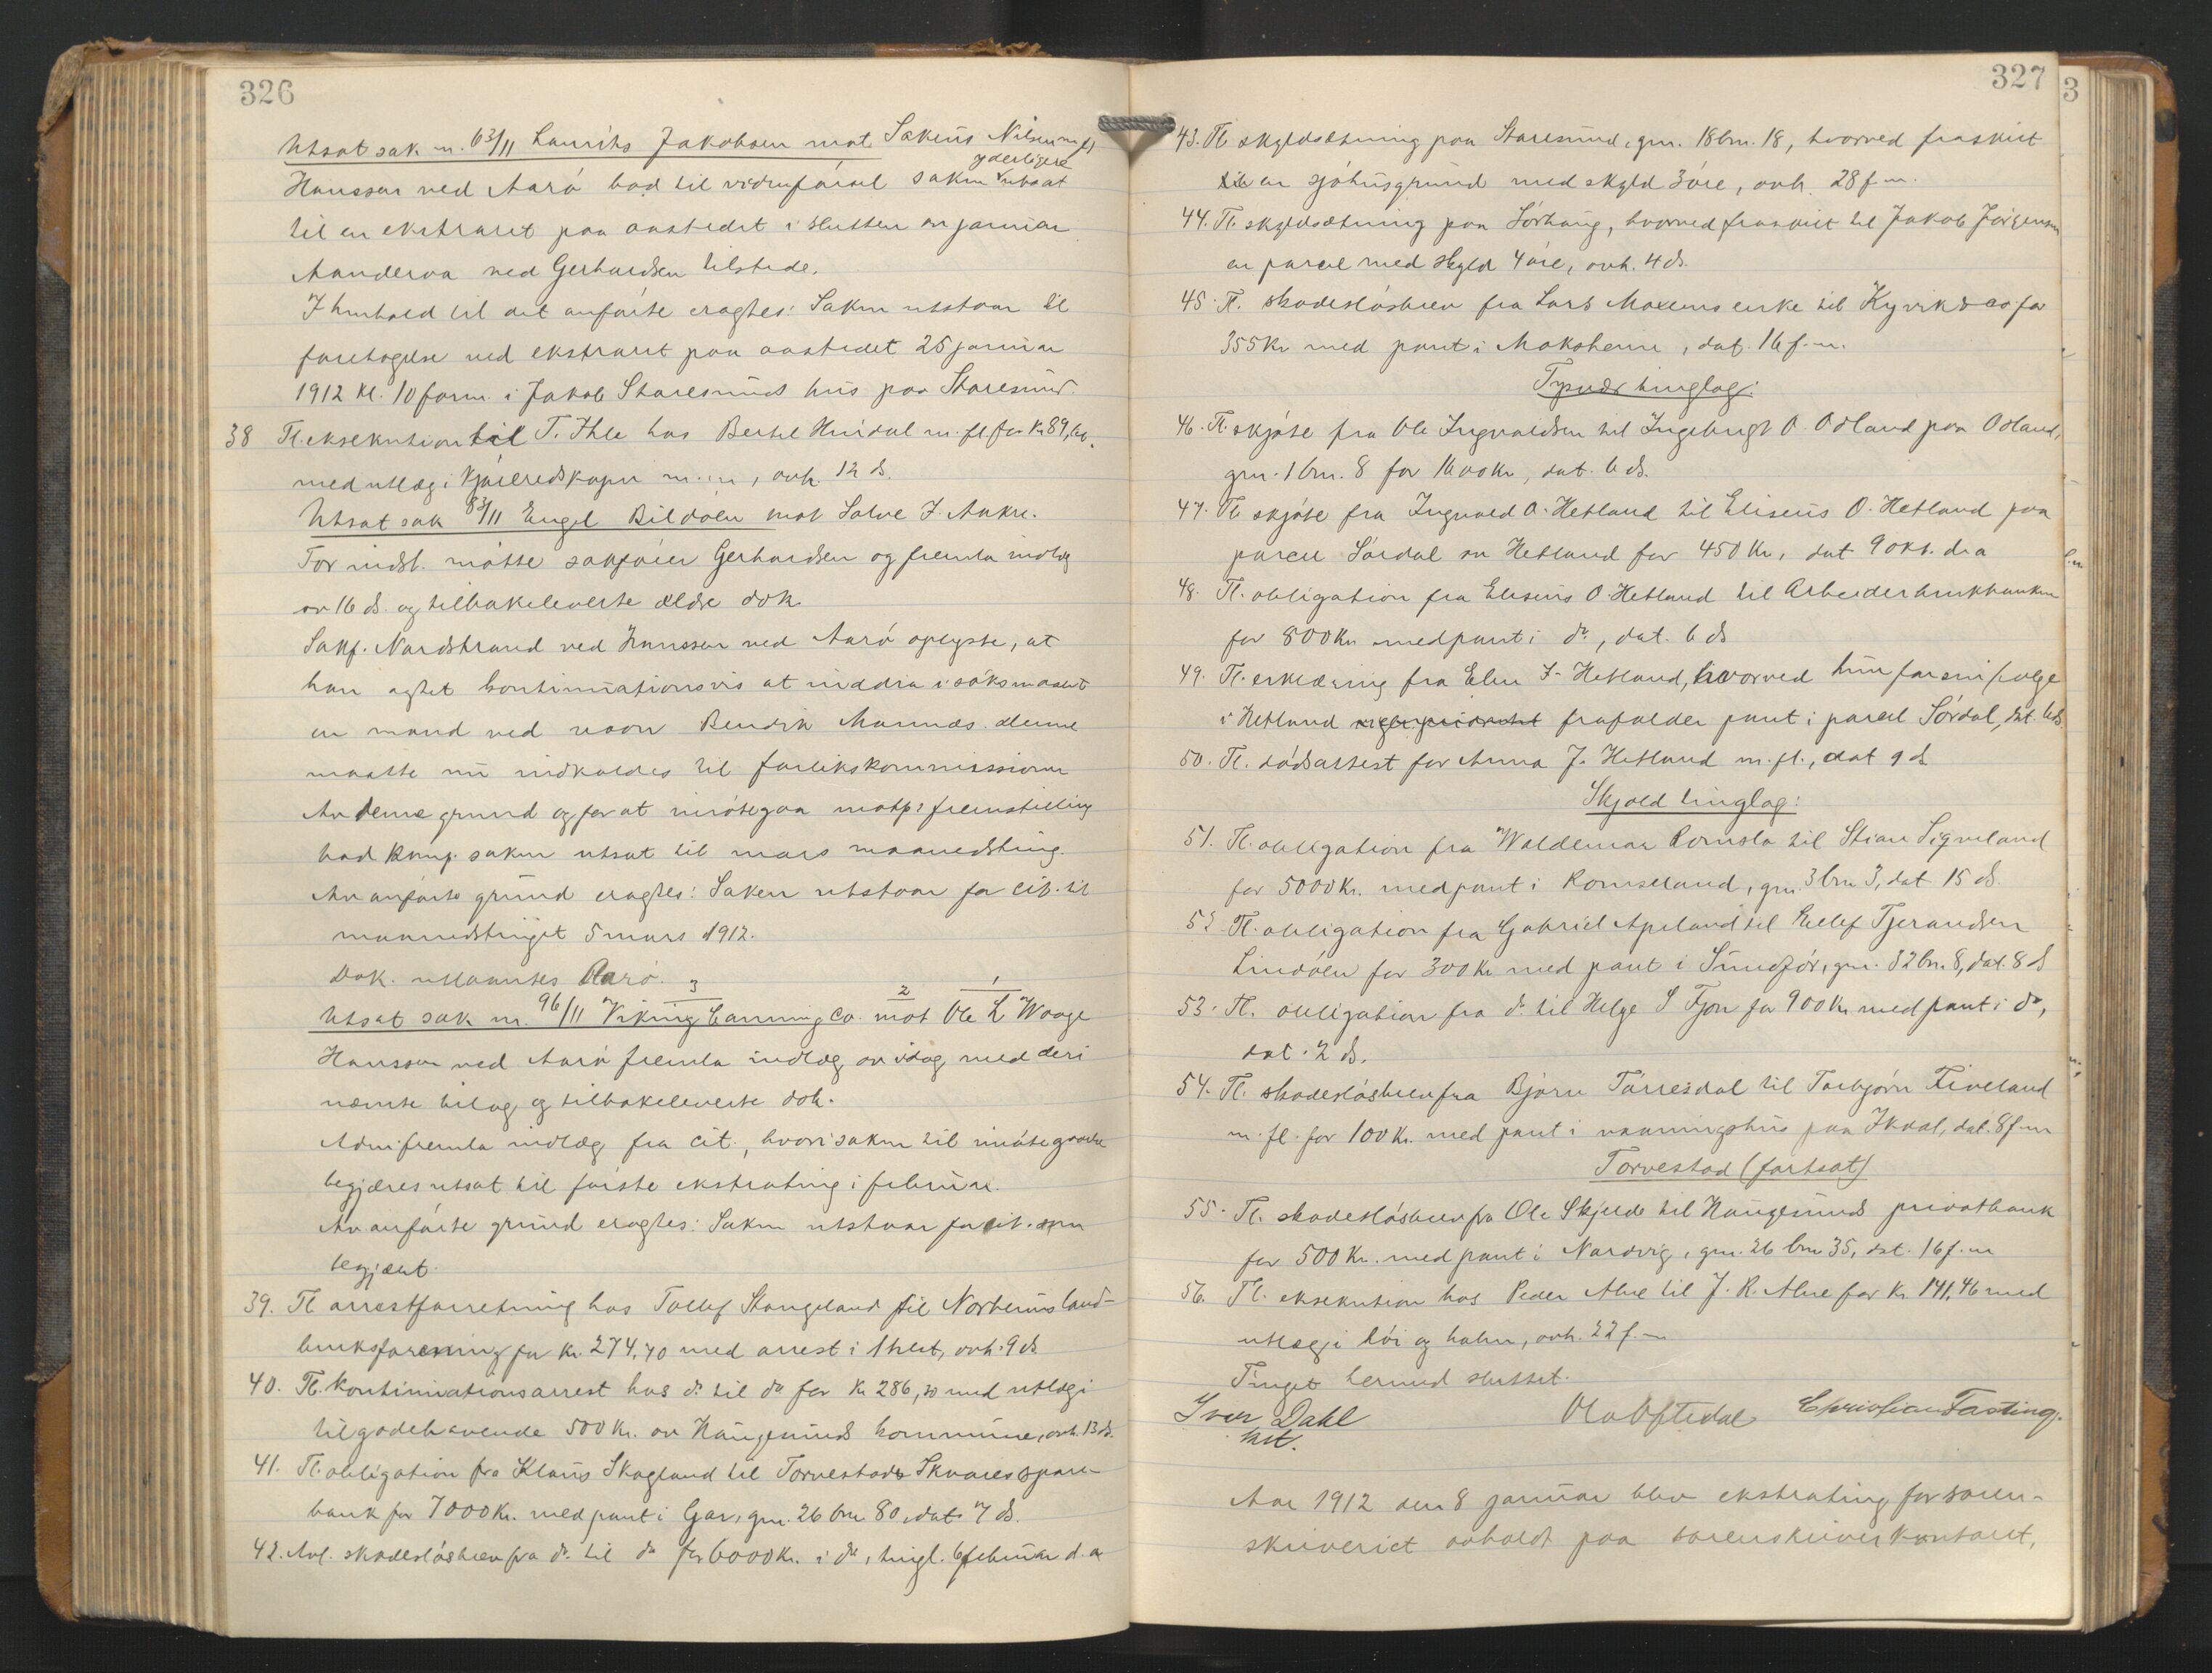 326
Utsat sak n. 63/11 Laurits Jakobsen mot Sakeus Nilsen m fl
Hanssen ved Aarö bad til vidneførsel saken yderligere utsat
til en ekstraret paa aastedet i slutten av januar
Aanderaa ved Gerhardsen tilstede.
I henhold til det anførte eragtes: Saken utstaar til
foretagelse ved ekstraret paa aastedet 25 januar
1912 kl. 10 form. i Jakob Staresinds hus paa Staresund.
38 Tl. eksekution til T. Ihle hos Bertel Hindal m. fl for Kr 89,60,
med utlæg i kjøreredskaper m. m, avh. 12 ds.
Utsat sak 83/11 Engel Bildøen mot Salve J. Aakre.
For indst. møtte sakfører Gerhardsen og fremla indlæg
av 16 ds. og tilbakeleverte ældre dok.
Sakf. Nordstrand ved Hanssen ved Aarö oplyste, at
han agtet kontinuationsvis at inddra i søksmaalet
en mand ved navn Bendik Mannes. denne
maatte nu indkaldes til forlikskommissionen
Av denne grund og for at imøtegaa motp:s fremstilling
bad komp. saken utsat til mars maanedsting.
Av anførte grund eragtes: Saken utstaar for cit. til
maanedstinget 5 mars 1912.
Dok. utlaantes Aarö.
3 2 1
Utsat sak nr. 96/11 Viking Canning Co. mot Ole L Waage
Hanssen ved Aarö fremla indlæg av idag med deri
nævnte bilag og tilbakeleverte dok.
Adm: fremla indlæg fra cit., hvori saken til imøtegaaelse
begjæres utsat til første ekstrating i februar.
Av anførte grund eragtes: Saken utstaar for cit. som
begjært.
39. Tl arrestforretning hos Tollef Stangeland til Norheims land-
bruksforening for kr. 274,70 med arrest i 1 hest, avh. 9 ds
40. Tl. kontinuationsarrest hos do til do for Kr 286,20 med utlæg i
tilgodehavende 500 Kr. av Haugesunds kommune, avh. 13 ds.
41. Tl. obligation fra Klaus Skogland til Torvestads Skaares spare-
bank for 7000 Kr. med pant i Gar, gnr. 26 bnr 80, dat. 7 ds.
42. Avl. skadesløsbrev fra do til do for 6000 Kr. i do, tingl. 6 februar d. a
327
43. Tl skyldsætning paa Staresund, gnr. 18 bnr. 18, hvorved fraskilt
til en sjøhusgrund med skyld 3 øre, avh. 28 f. m.
44. Tl. skyldsætning paa Sørhaug, hvorved fraskilt til Jakob Jørgensen
en parcel med skyld 4 øre, avh. 4 ds.
45. Tl. skadesløsbrev fra Lars Moxems enke til Kyvik & co for
355 Kr med pant i Moksheim, dat. 16 f. m.
Tysvær tinglag:
46. Tl. skjøte fra Ole Ingvaldsen til Ingebrigt O. Odland paa Odland,
gnr. 1 bnr. 8 for 1600 Kr, dat. 6 ds.
47. Tl skjøte fra Ingvald O. Hetland til Eliseus O. Hetland paa
parcel Sørdal av Hetland for 450 Kr, dat 9 okt. d. a
48. Tl. obligation fra Eliseus O. Hetland til Arbeiderbrukbanken
for 800 Kr med pant i do, dat. 6 ds
49. Tl. erklæring fra Elen J. Hetland, hvorved hun for sin folge
i Hetland frafalder pant i parcel Sørdal, dat. 6 ds.
50. Tl. dødsattest for Anna J. Hetland m. fl., dat 9 ds
Skjold tinglag:
51. Tl. obligation fra Waldemar Romsla til Stian Signeland
for 5000 Kr. med pant i Romseland, gnr 3 bnr 3, dat 15 ds.
52 Tl. obligation fra Gabriel Apeland til Tjerandsen
Lindøen for 300 Kr med pant i Sundfør, gnr. 82 bnr. 8, dat. 8 ds
53. Tl. obligation fra do til Helge S Fjon for 900 Kr med pant i do,
dat. 2 ds.
54. Tl. skadesløsbrev fra Bjørn Tørresdal til Torbjørn Fiveland
m. fl. for 100 Kr. med pant i vaaningshus paa dat. 8 f. m
Torvestad (fortsat)
55. Tl. skadesløsbrev fra Ole Skjelde til Haugesunds privatbank
for 500 Kr. med pant i Nordvig, gnr. 26 bnr 35, dat. 16 f. m
56. Tl. eksekution hos Peder Alne til J. R. Alne for Kr 141,46 med
utlæg i høi og halm, avh. 22 f. m
Tinget hermed sluttet.
Iver Dahl
Ola Opstedal Christian Fasting.
Aar 1912 den 8 januar blev ekstrating for soren-
skriveriet avholdt paa sorenskriverkontoret,
3